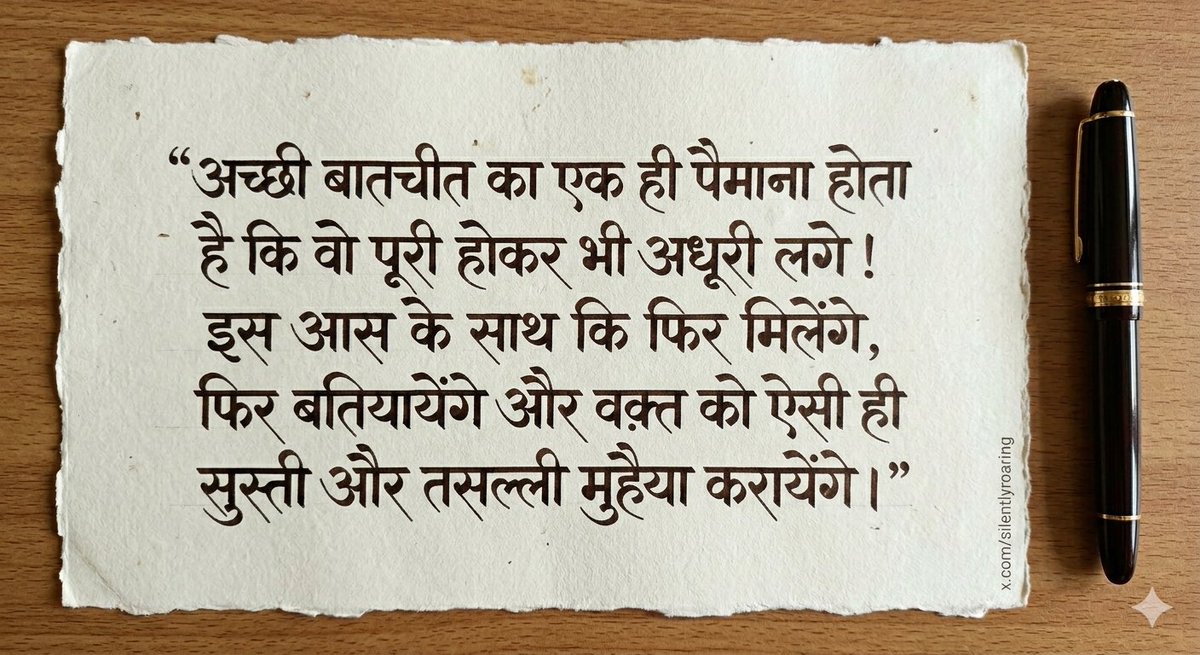 “अच्छी बातचीत का एक ही पैमाना होता
है कि वो पूरी होकर भी अधूरी लगे!
इस आस के साथ कि फिर मिलेंगे,
फिर बतियायेंगे और वक़्त को ऐसी ही
सुस्ती और तसल्ली मुहैया करायेंगे।”
x.com/silentlyroaring